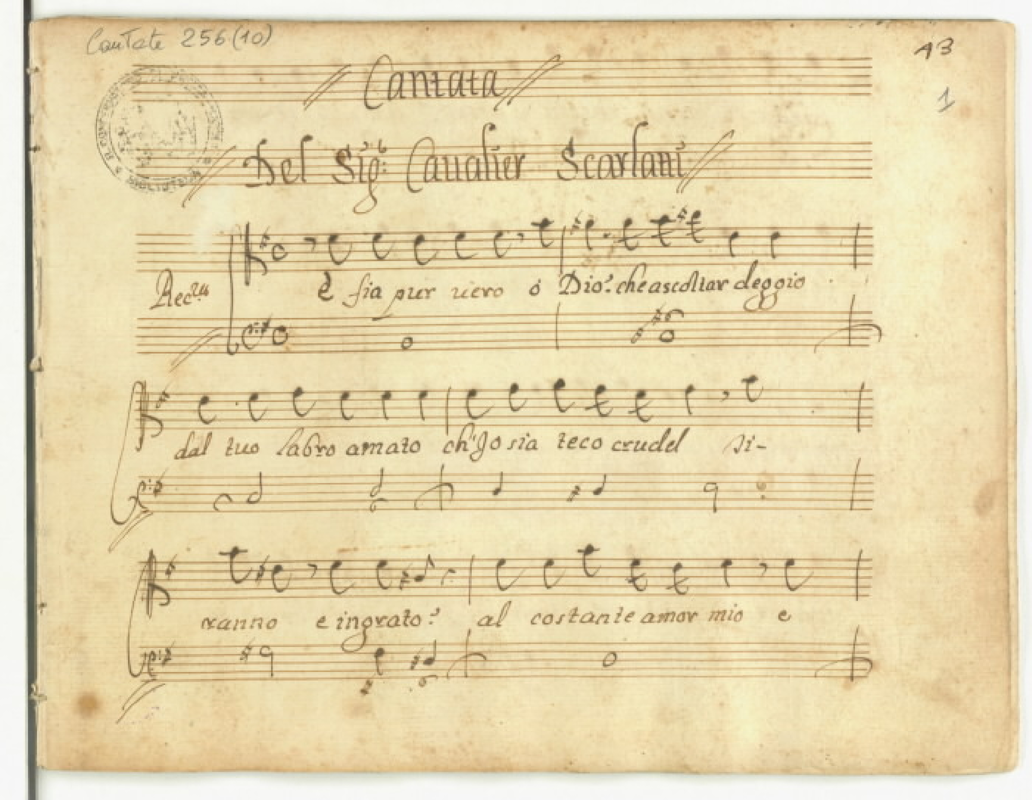 Cantate 256(10)
43
1
Cantata
Del Sig.r Caualier Scarlatti
È sia pur uero ó Dio? che ascoltar deggio
Rec.uo
dal tuo labro amato ch'Io sia teco crudel ti-
ranno e ingrato? al costante amor mio e